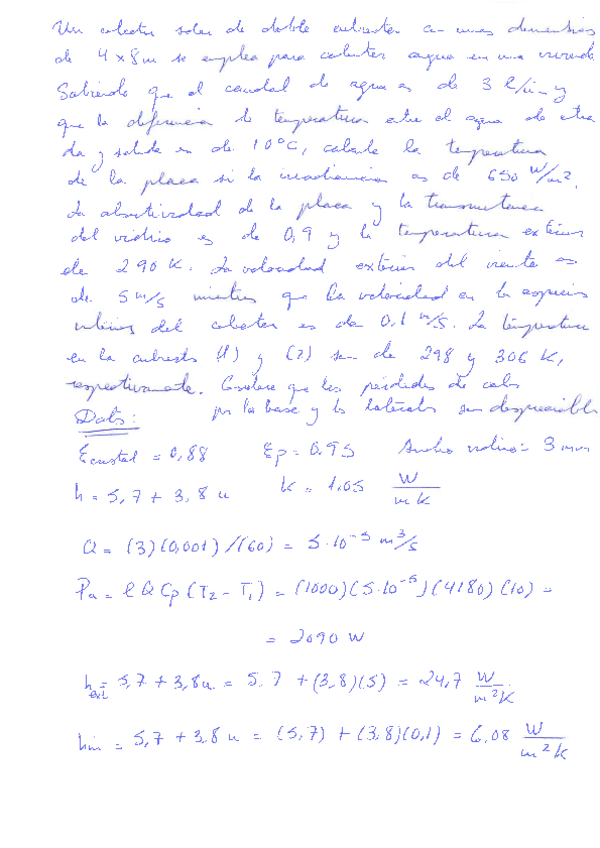 Un colector solar de doble cubierta con unas dimensiones
de 4 x 8 m se emplea para calentar agua en una vivienda.
Sabiendo que el caudal de agua es de 3 l/min y
que la diferencia de temperatura entre el agua de entra
da y salida es de 10°C, calcule la temperatura
de la placa si la irradiancia es de 650 W/m².
La absortividad de la placa y la transmitancia
del vidrio es de 0,9 y la temperatura exterior
de 290 K. La velocidad exterior del viento es
de 5 m/s mientras que la velocidad en los espacios
interiores del colector es de 0,1 m/s. La temperatura
en la cubierta (1) y (2) son de 298 y 306 K,
respectivamente. Considere que las pérdidas de calor
por la base y los laterales son despreciables
Datos:
Ecristal = 0,88 Ep = 0.95 Ancho vidrio = 3 mm
h = 5,7 + 3,8 u k = 1.05 W/mK
Q = (3)(0,001)/(60) = 5·10⁻⁵ m³/s
Pa = ρ Q Cp (T₂ - T₁) = (1000)(5·10⁻⁵)(4180)(10) =
= 2090 W
hext = 5,7 + 3,8 u = 5.7 + (3,8)(5) = 24,7 W/m²K
hin = 5,7 + 3,8 u = (5,7) + (3,8)(0,1) = 6,08 W/m²K